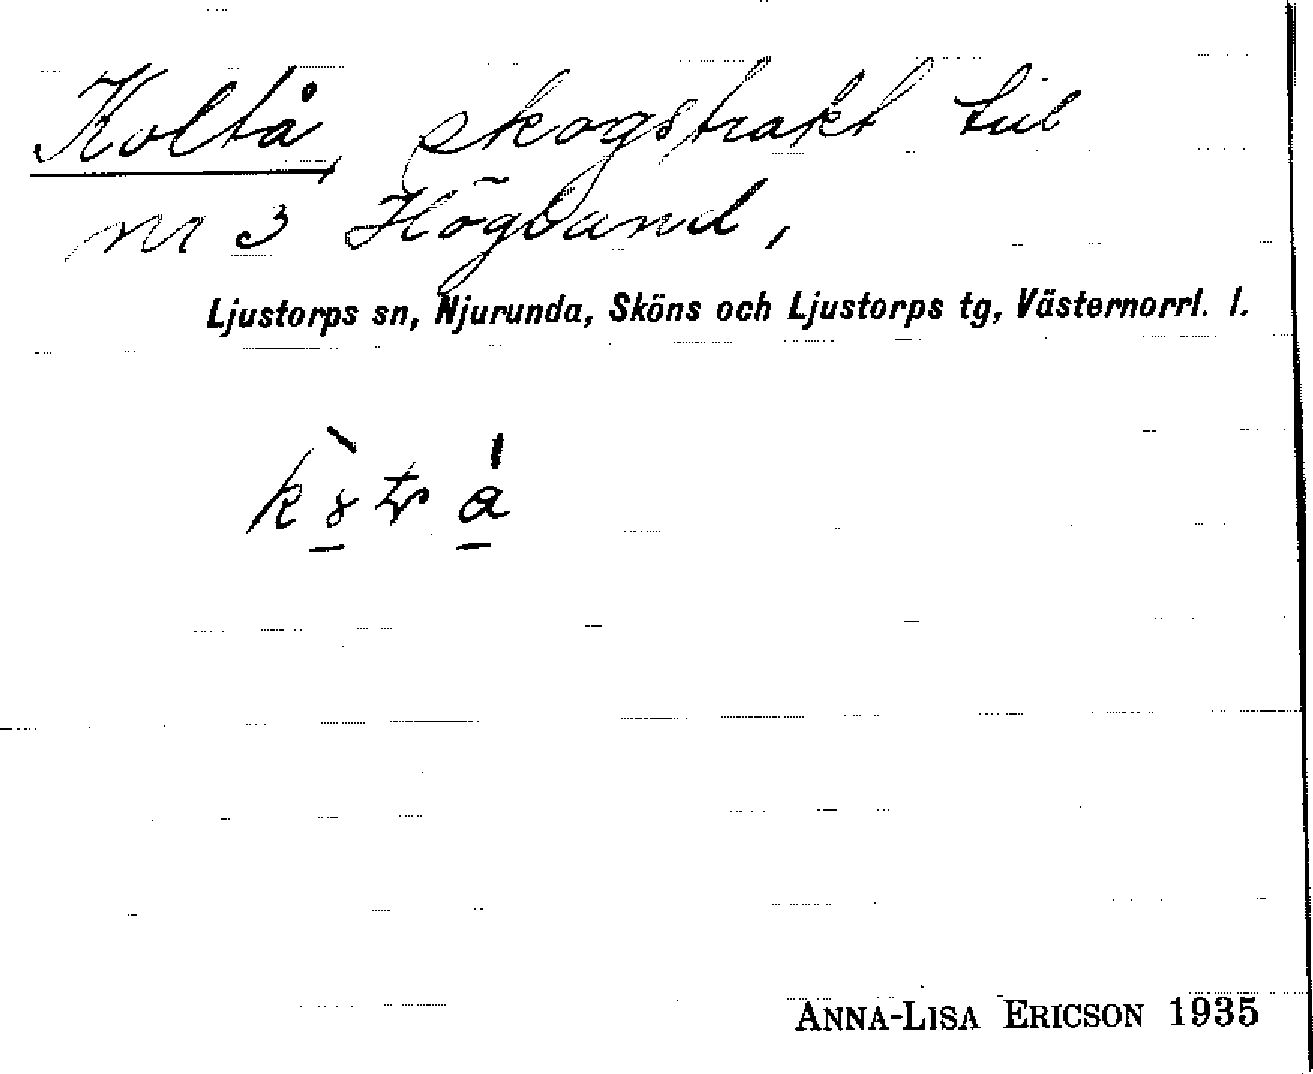 Koltå, skogstrakt till
nr 3 Höglund,
Ljustorps sn, Njurunda, Sköns och Ljustorps tg, Västernorrl. l.
ANNA-LISA ERICSON 1935